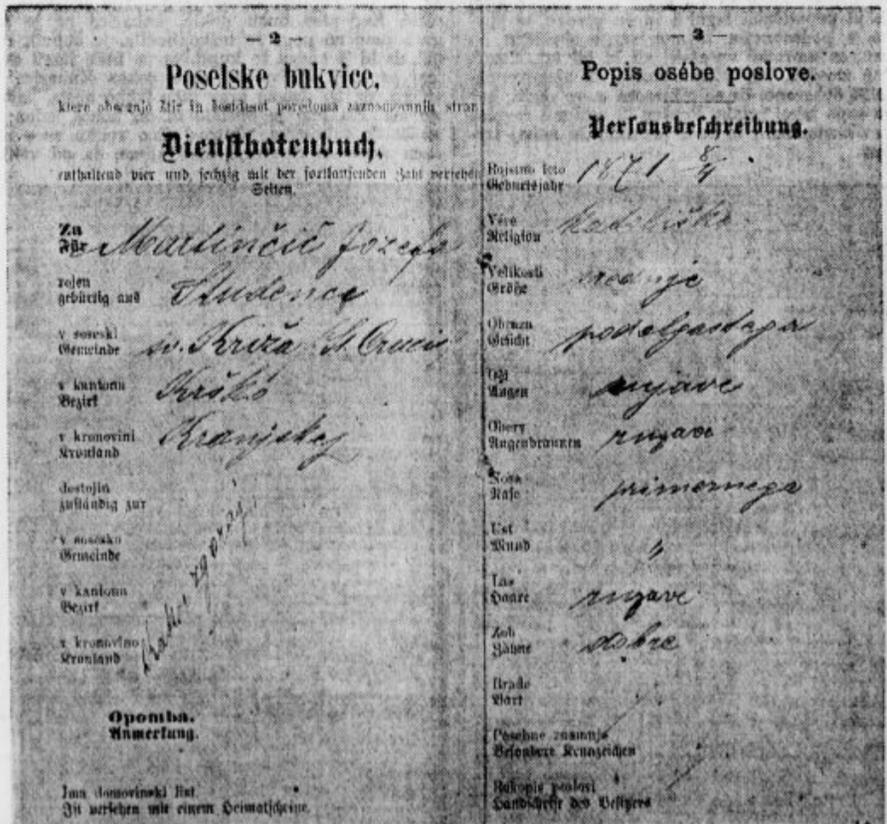 — 2 —
Poselske bukvice,
ktere obsegajo štir in šestdeset poredoma zaznamovanih stran
Dienstbotenbuch,
enthaltend vier und sechzig mit der fortlaufenden Zahl versehen
Seiten.
Za
Für Martinčič Jozefa
rojen
gebürtig aus Studence
v soseski
Gemeinde sv. Križa St. Crucis
v kantonu
Bezirk Krško
v kronovini
Kronland Kranjskej
dostojin
zuständig zur
v sosesko
Gemeinde
v kantonu
Bezirk
v kronovino
Kronland
Kakor zgoraj
Opomba.
Anmerkung.
Ima domovinski list.
Ist versehen mit einem Heimatscheine.
— 3 —
Popis osébe poslove.
Personsbeschreibung.
Rojstno leto
Geburtsjahr 1871 8/4
Vére
Religion katoliške
Velikosti
Größe srednje
Obraza
Gesicht podolgastega
Oči
Augen rujave
Obervi
Augenbraunen rujave
Nosa
Nase primernega
Ust
Mund "
Las
Haare rujave
Zob
Zähne dobre
Brade
Bart
Posebne znamnja
Besondere Kennzeichen
Rokopis poslovi
Handschrift des Besitzers